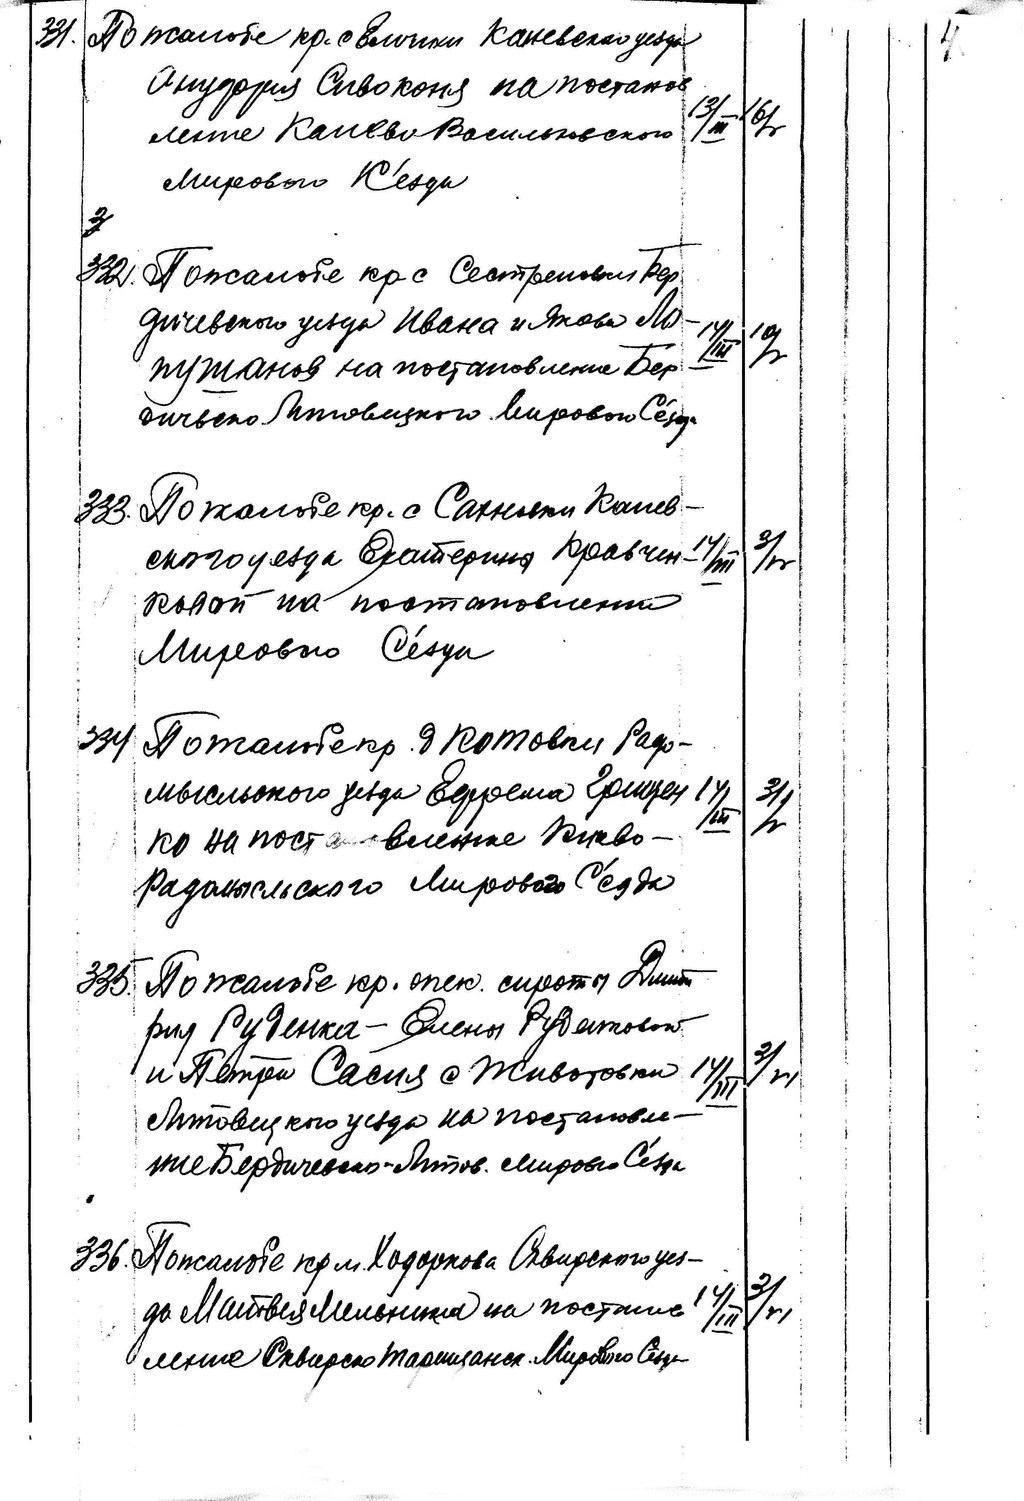 331. По жалобе кр. с Елочки Каневского уезда
Онуфрия Сивоконя на постанов
ление Каневе Васильковского 13/III 16/V
Мирового С'езда
332. По жалобе кр с Сестреновки Бер
дичевского уезда Ивана и Якова Ло-
пушанов на постановление Бер- 14/III 10/V
дичевско Литовецкого Мирового С'езда
333. По жалобе кр. с Сахновки Канев-
ского уезда Екатерины Кравчен- 14/III 3/V
ковой на постановление
Мирового С'езда
334 По жалобе кр. д Котовки Радо-
мысльского уезда Ефрема Грищен 14/III 31/V
ко на постановление Киево-
Радомысльского Мирового С'езда
335. По жалобе кр. опек. сироты Дмит
рия Руденка - Елены Руденковой
и Петра Сасия с Животовки 14/III 3/VI
Литовецкого уезда на постановле-
ние Бердичевско-Литов. мирового С'езда
336. По жалобе кр м. Ходоркова Сквирского уез-
да Матвея Мельника на постано 14/III 3/VI
вление Сквирско Таращанск. Мирового С'езда
4